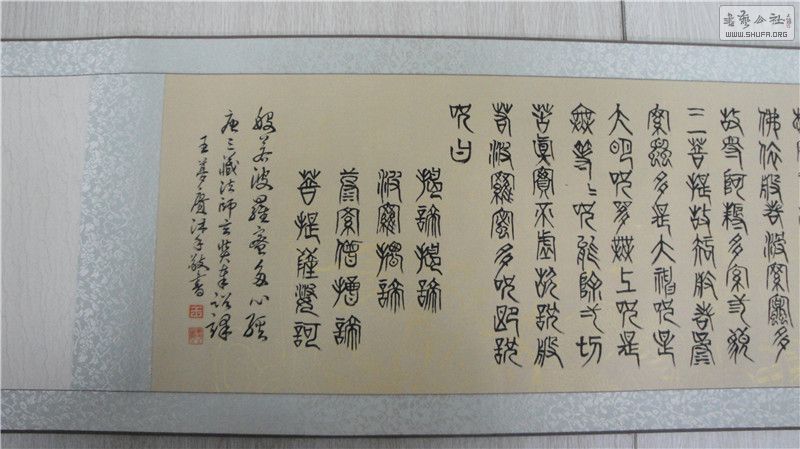 書藝公社
WWW.SHUFA.ORG
佛依般若波羅蜜多
故得阿耨多羅三藐
三菩提故知般若波
羅蜜多是大神咒是
大明咒是無上咒是
無等等咒能除一切
苦真實不虛故說般
若波羅蜜多咒即說
咒曰
揭諦揭諦
波羅揭諦
波羅僧揭諦
菩提薩婆訶
般若波羅蜜多心經
唐三藏法師玄奘奉詔譯
王夢沐手敬書